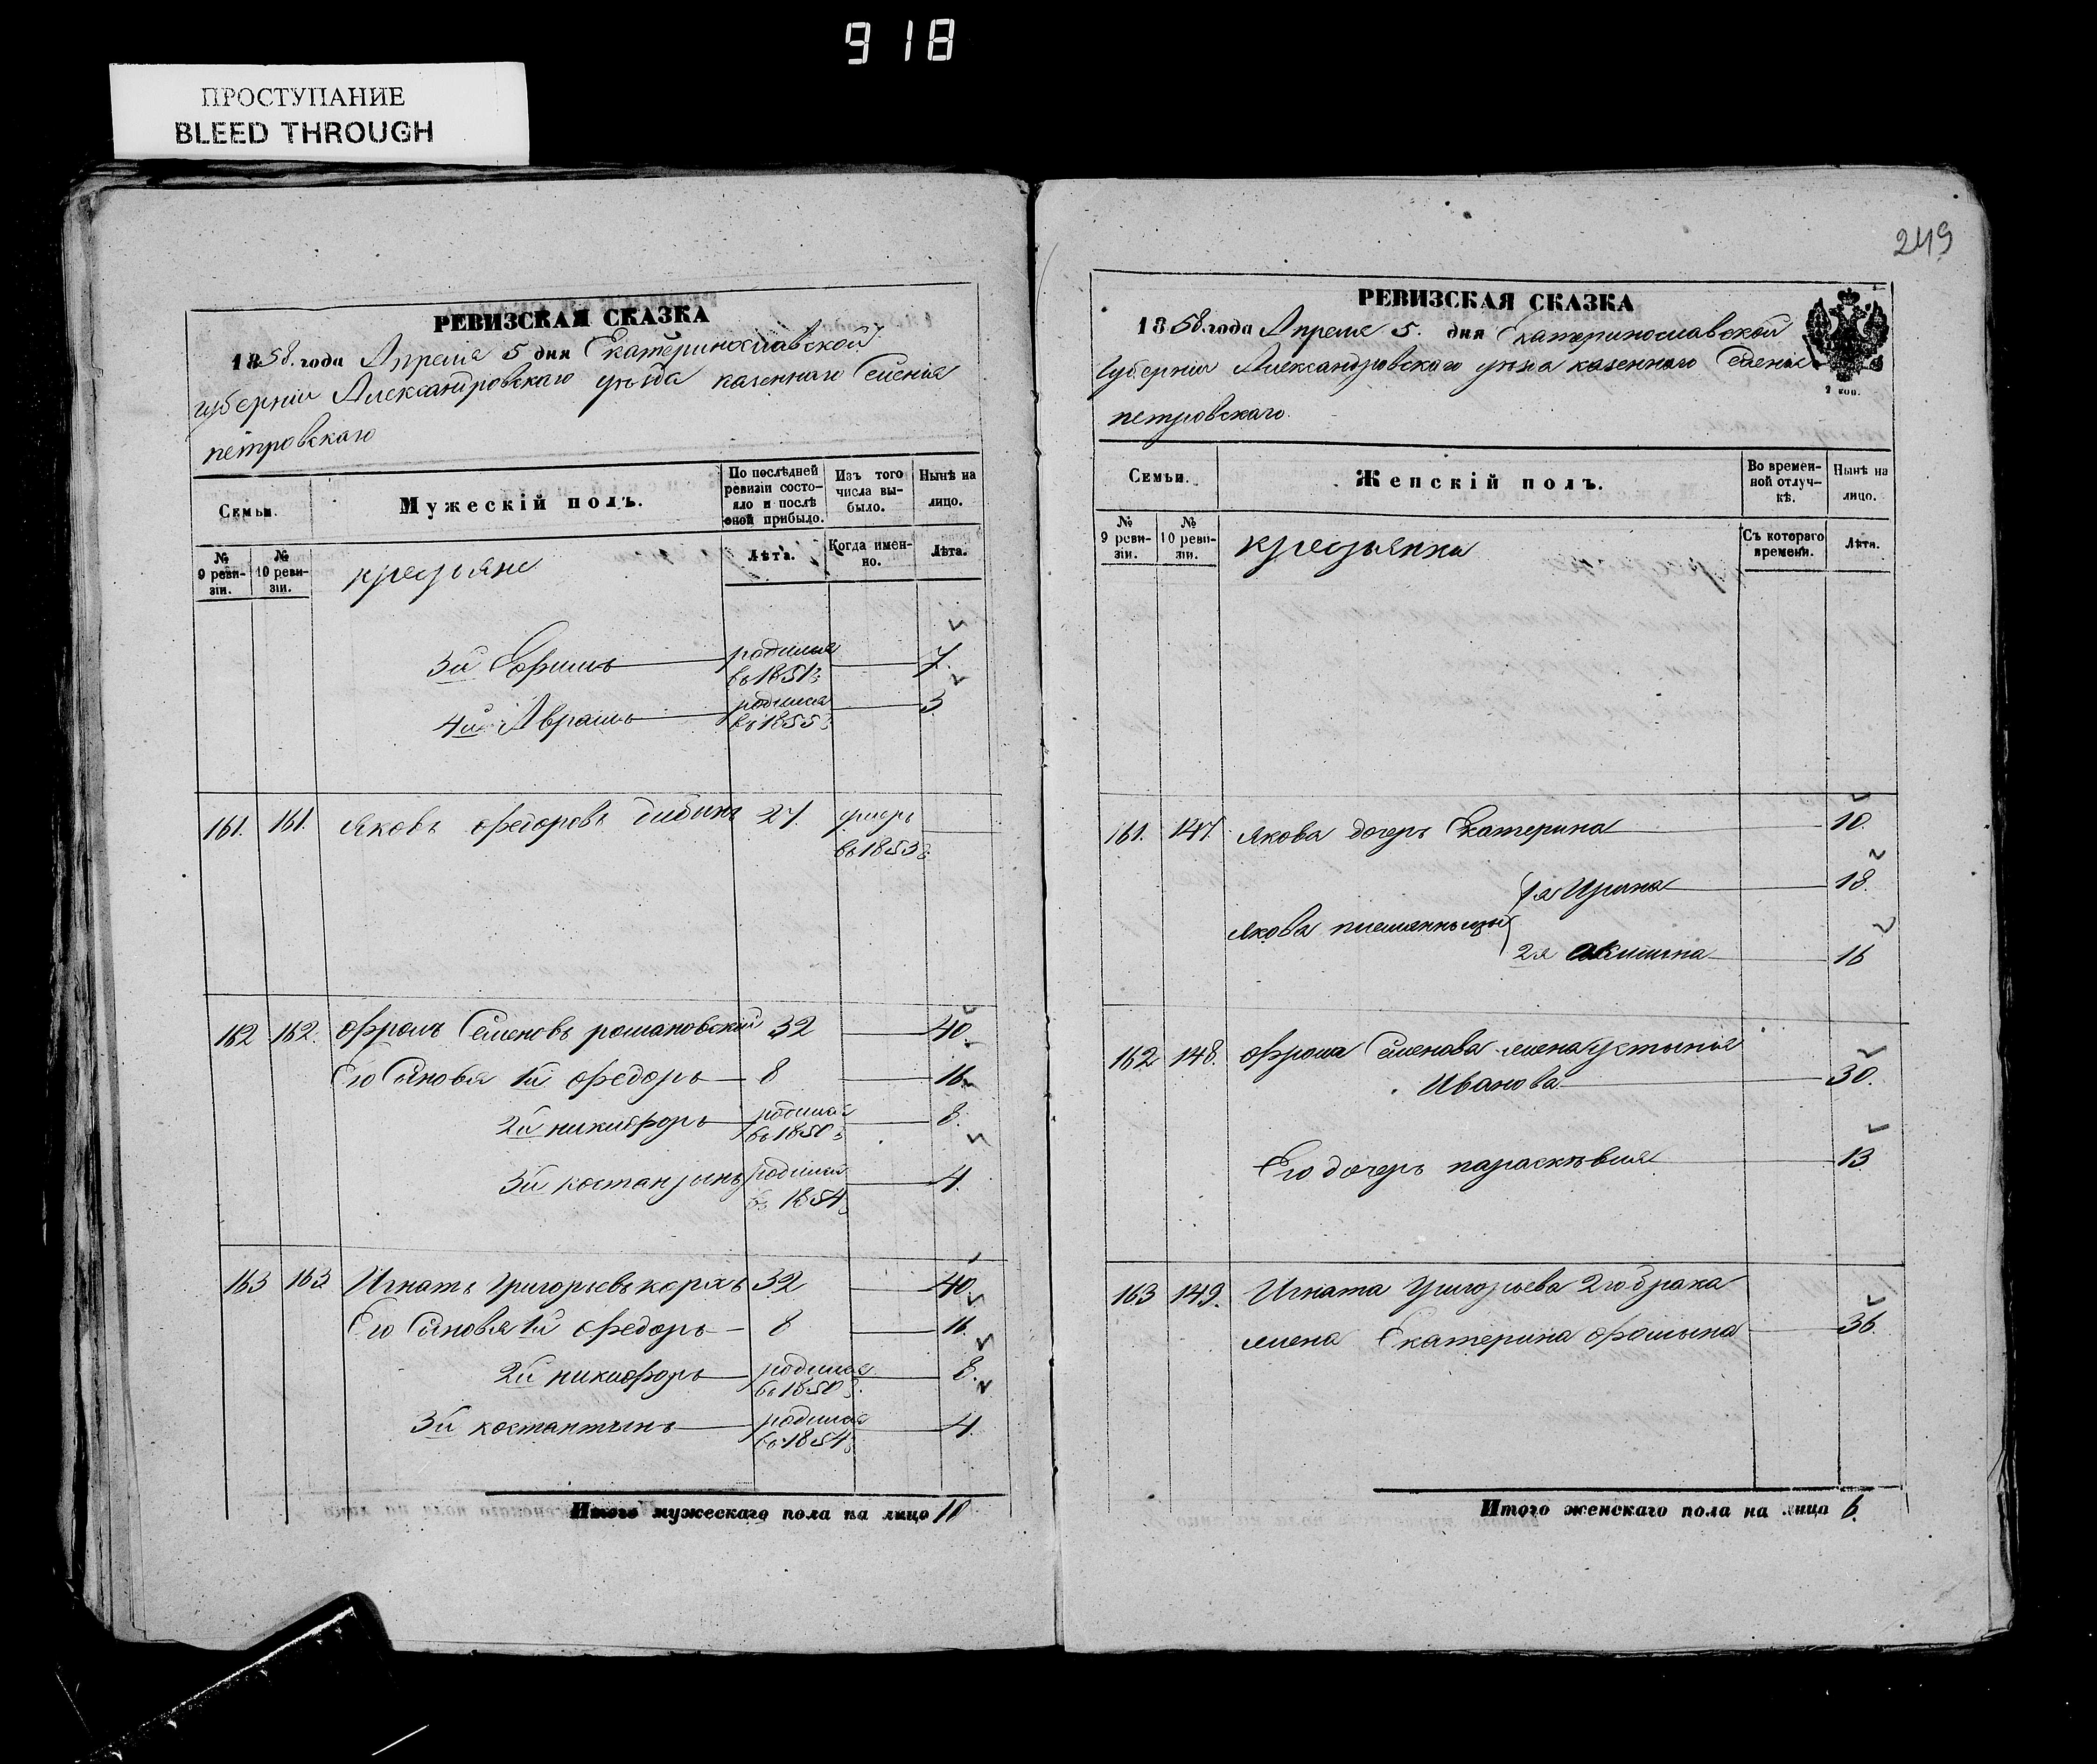 918
ПРОСТУПАНИЕ
BLEED THROUGH
РЕВИЗСКАЯ СКАЗКА
1858. года Апреля 5 дня Екатеринославской
губерніи Александровскаго уѣзда казеннаго Селенія
петровскаго
Семьи.
Мужескій полъ.
По послѣдней ревизіи состояло и послѣ оной прибыло.
Изъ того числа выбыло.
Нынѣ на лицо.
№ 9 ревизіи.
№ 10 ревизіи.
крестьяне
Лѣта.
Когда именно.
Лѣта.
3й Ефимъ родился въ 1851г 7.
4й Аврамъ родился въ 1855г 3
161. 161. Яковъ Федоровъ 27. умеръ въ 1853г
162 162. Фромъ Семеновъ романовский 32 40.
Его Сыновья 1й Федоръ 8 16
2й никифоръ родился въ 1850г 8.
3й костантынъ родился въ 1854г 4.
163 163 Игнатъ Григорьевъ коржъ 32 40.
Его Сыновья 1й Федоръ 8 16.
2й никифоръ родился въ 1850г. 8.
3й костантынъ родился въ 1854г 4
Итого мужескаго пола на лицо 10
249
РЕВИЗСКАЯ СКАЗКА
1858. года Апреля 5. дня Екатеринославской
Губерніи Александровскаго уѣзда казеннаго Селенія
2 коп.
петровскаго.
Семьи.
Женскій полъ.
Во временной отлучкѣ.
Нынѣ на лицо.
№ 9 ревизіи.
№ 10 ревизіи.
крестьянки
Съ котораго времени.
Лѣта.
161. 147. Якова дочерь Екатерина 10.
1я Ирина 18.
Якова племянныцы
2я Акилина 16
162 148. Фрома Семенова жена Устынія
Иванова 30.
Его дочерь параскѣвия 13
163 149. Игната Григорьева 2го брака
жена Екатерина Фомына 36.
Итого женскаго пола на лицо 6.